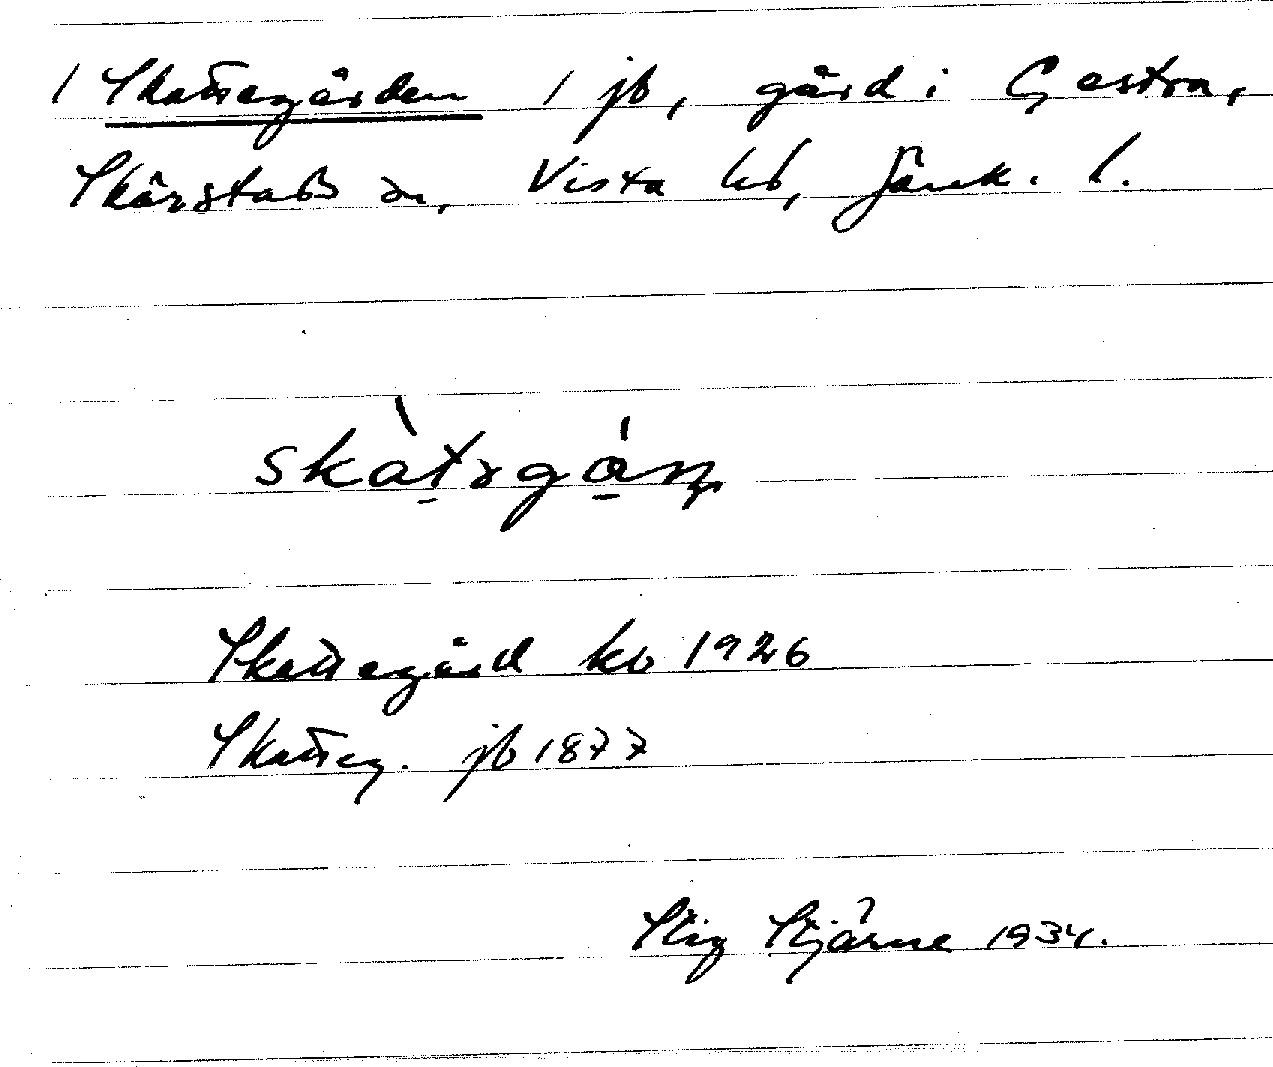 1 Skattegården 1 jb, gård i Gestra,
Skärstads sn, Vista hd, Jönk. l.
skàṭǝgȧ́ṇ
Skattegård kb 1926
Skatteg. jb 1877
Stig Stjärne 1934.